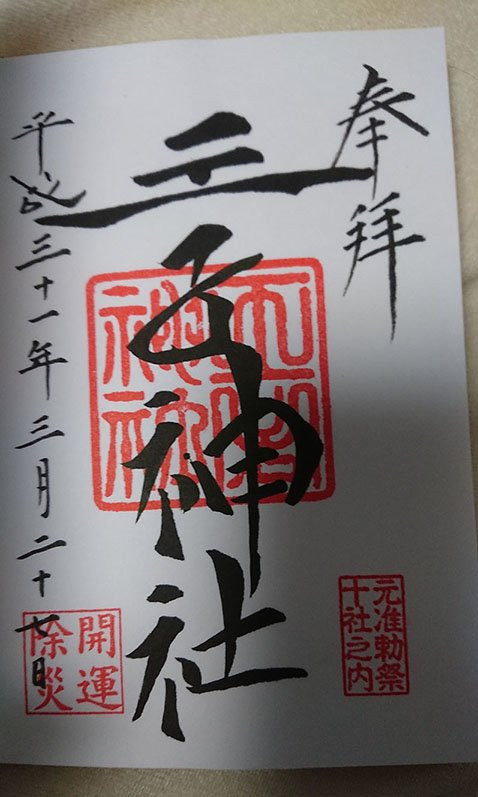 奉拝
元准勅祭
十社之内
王子神社
開運
除災
平成三十一年三月二十七日